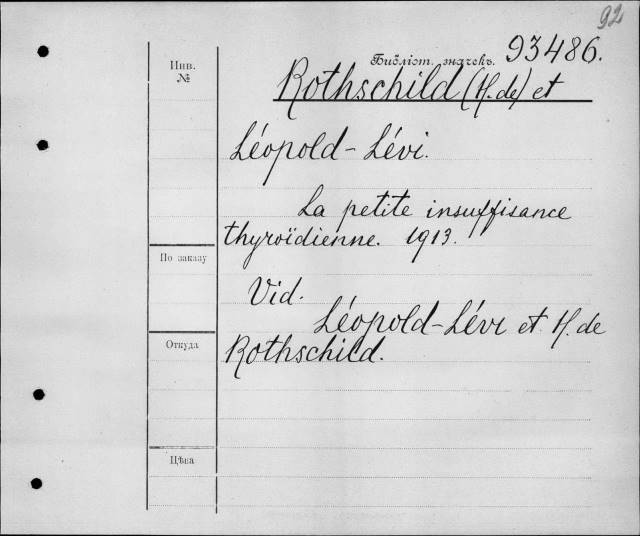 92
Инв.
№
Библіот. значекъ. 93486.
Rothschild (H. de) et
Léopold-Lévi.
La petite insuffisance
thyroïdienne. 1913.
По заказу
Vid.
Léopold-Lévi et H. de
Откуда
Rothschild.
Цѣна